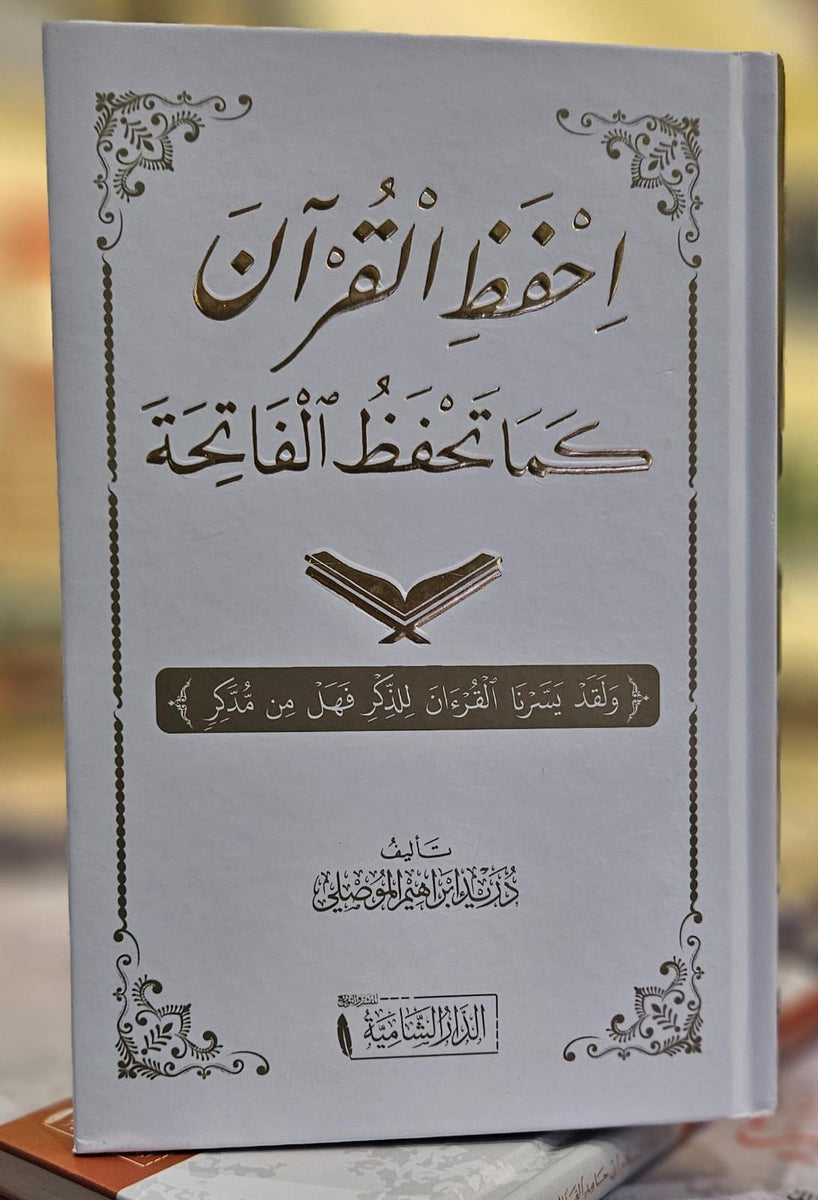 احْفَظِ الْقُرْآنَ
كَمَا تَحْفَظُ ٱلْفَاتِحَةَ
﴿وَلَقَدْ يَسَّرْنَا ٱلْقُرْءَانَ لِلذِّكْرِ فَهَلْ مِن مُّدَّكِرٍ﴾
تَأليفُ
دُرَيْد ابْرَاهِيْم المُوْصِلِي
للنشر والتوزيع
الدَّارُ الشَّامِيَّة